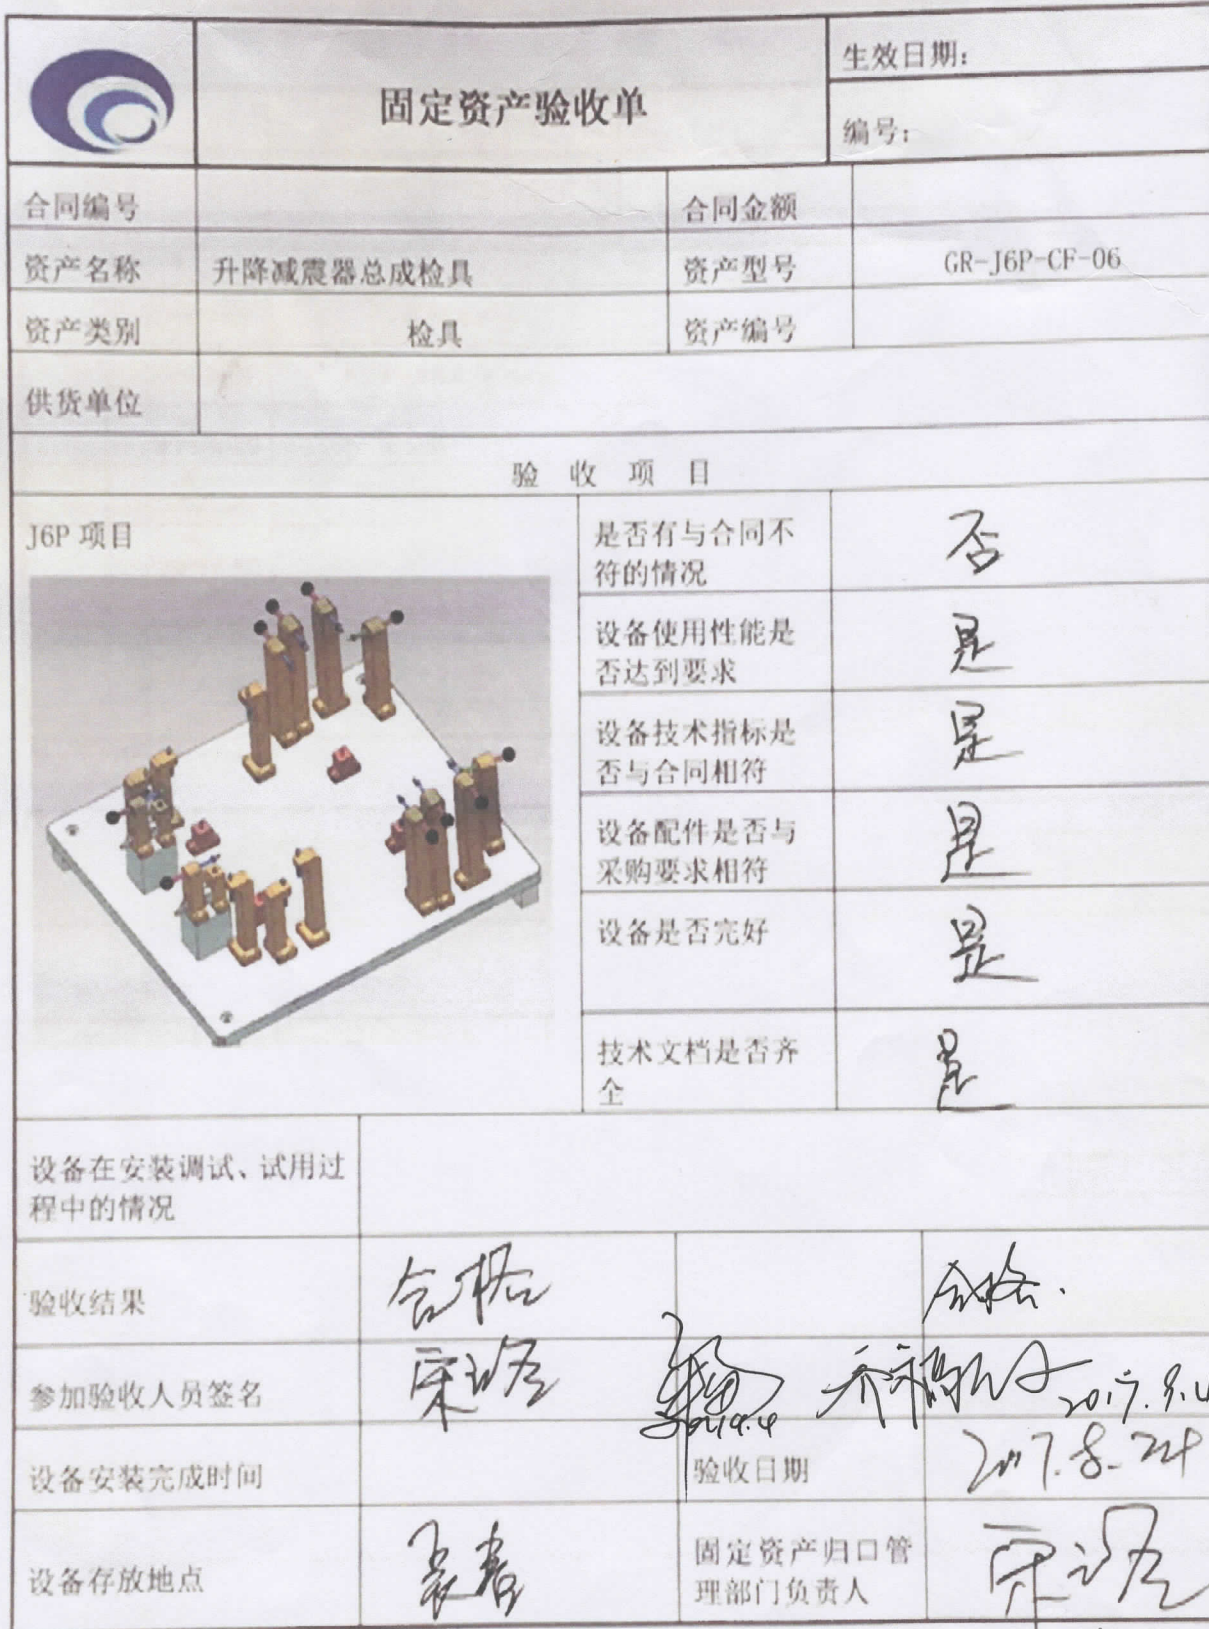 固定资产验收单
生效日期：
编号：
合同编号
合同金额
资产名称
升降减震器总成检具
资产型号
GR-J6P-CF-06
资产类别
检具
资产编号
供货单位
验 收 项 目
J6P 项目
是否有与合同不
符的情况
否
设备使用性能是
否达到要求
是
设备技术指标是
否与合同相符
是
设备配件是否与
采购要求相符
是
设备是否完好
是
技术文档是否齐
全
是
设备在安装调试、试用过
程中的情况
验收结果
合格
合格.
参加验收人员签名
2017.9.4
设备安装完成时间
验收日期
2017.8.24
设备存放地点
长春
固定资产归口管
理部门负责人